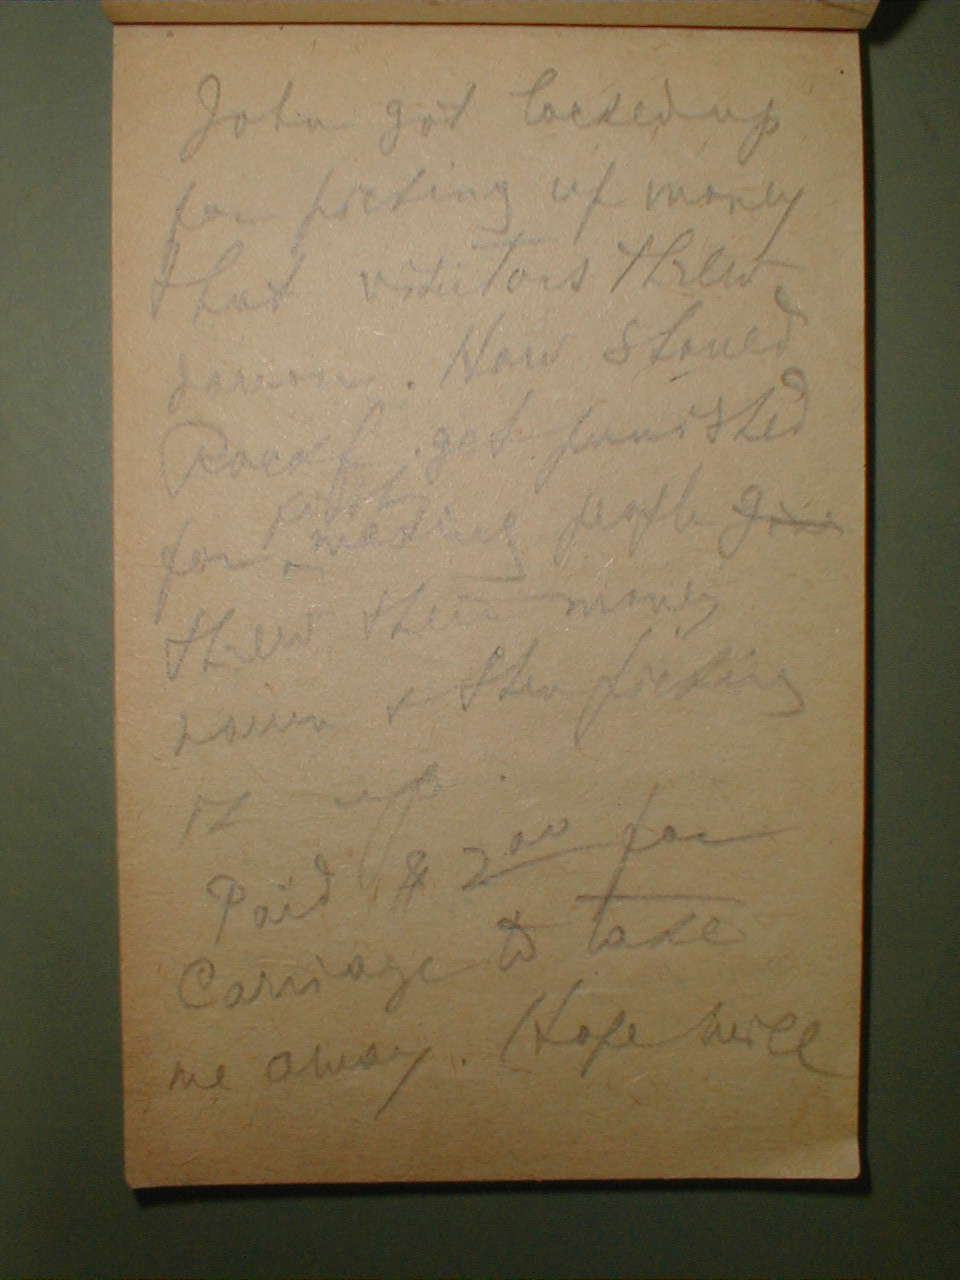 John got locked up
for picking up money
that visitors threw
down. How should
Roach get punished
for making people give
threw their money
down & then picking
it up.
Paid $2.00 for
Carriage to take
me away. Hope will